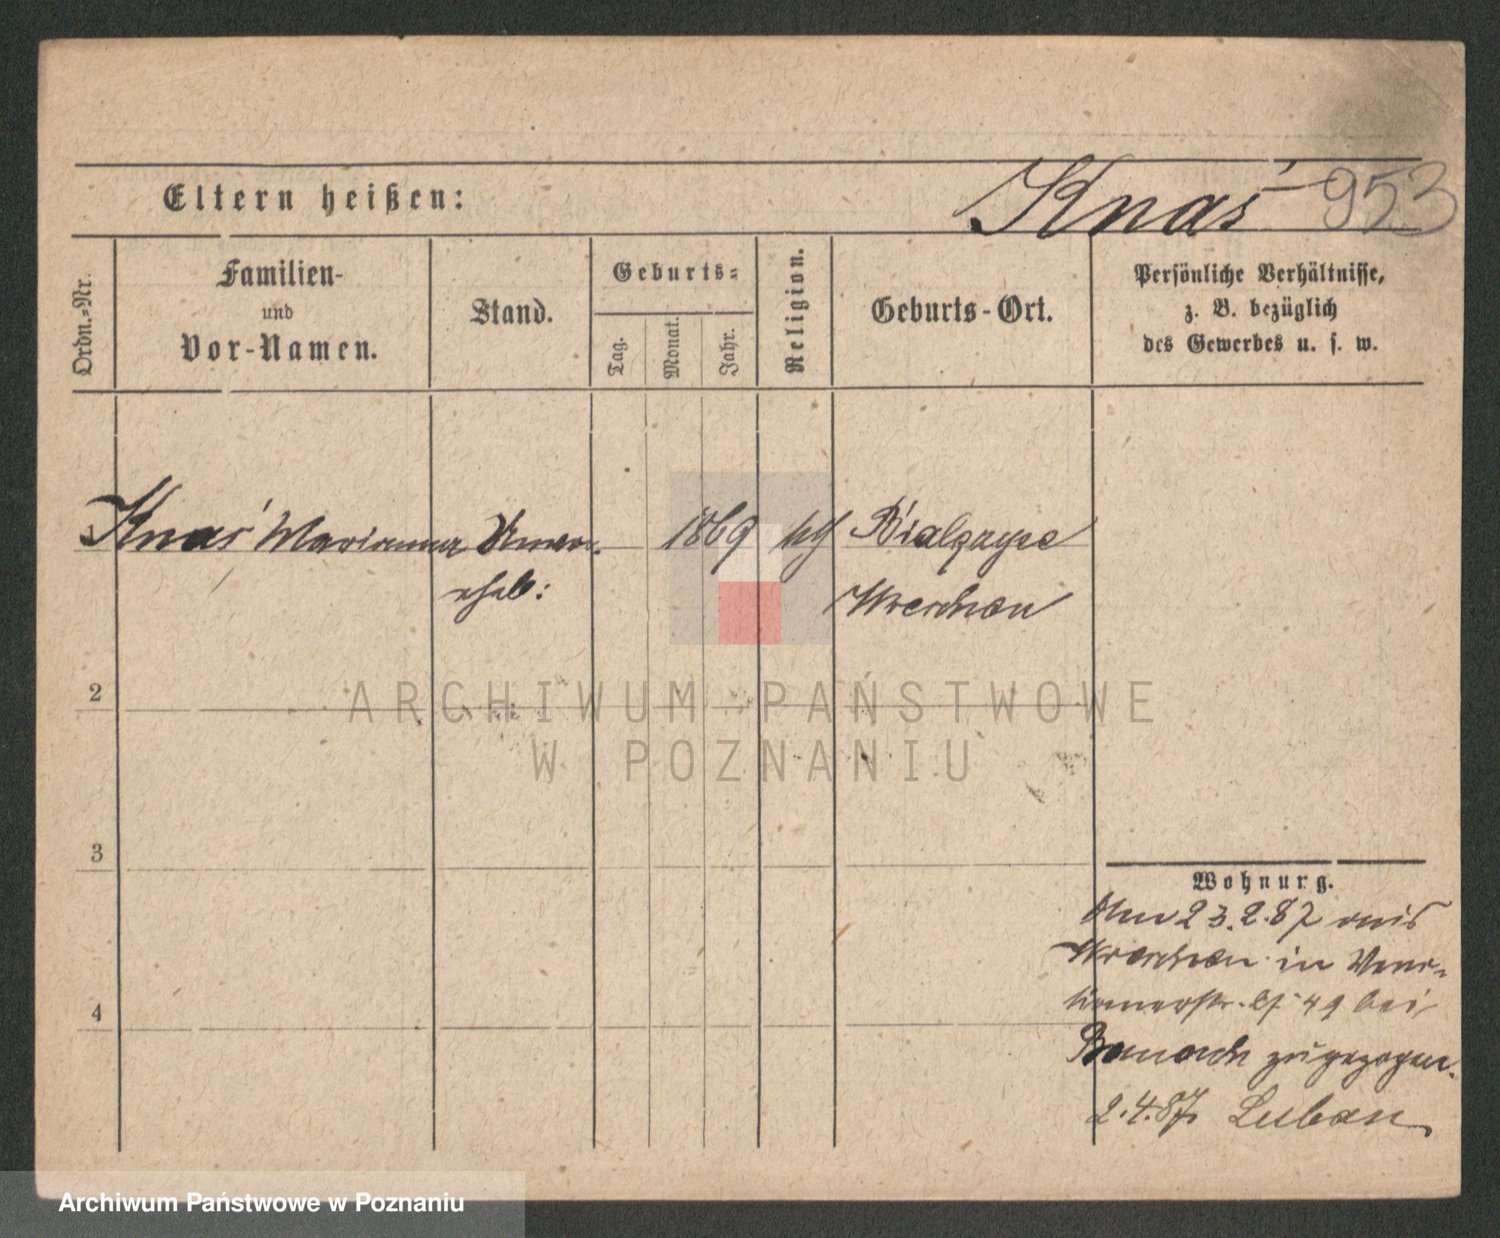 Eltern heißen:
Knaś 953
Ordn.-Nr.
Familien-
und
Vor-Namen.
Stand.
Geburts-
Tag.
Monat.
Jahr.
Religion.
Geburts-Ort.
Persönliche Verhältnisse,
z. B. bezüglich
des Gewerbes u. s. w.
1 Knaś Marianna Unver-
ehel: 1869
Wreschen
2
ARCHIWUM PAŃSTWOWE
W POZNANIU
3
Wohnung.
Am 23.2.87 aus
Wreschen in Vene-
tianerstr. 49 bei
4
zugezogen.
2.4.87 Luban
Archiwum Państwowe w Poznaniu